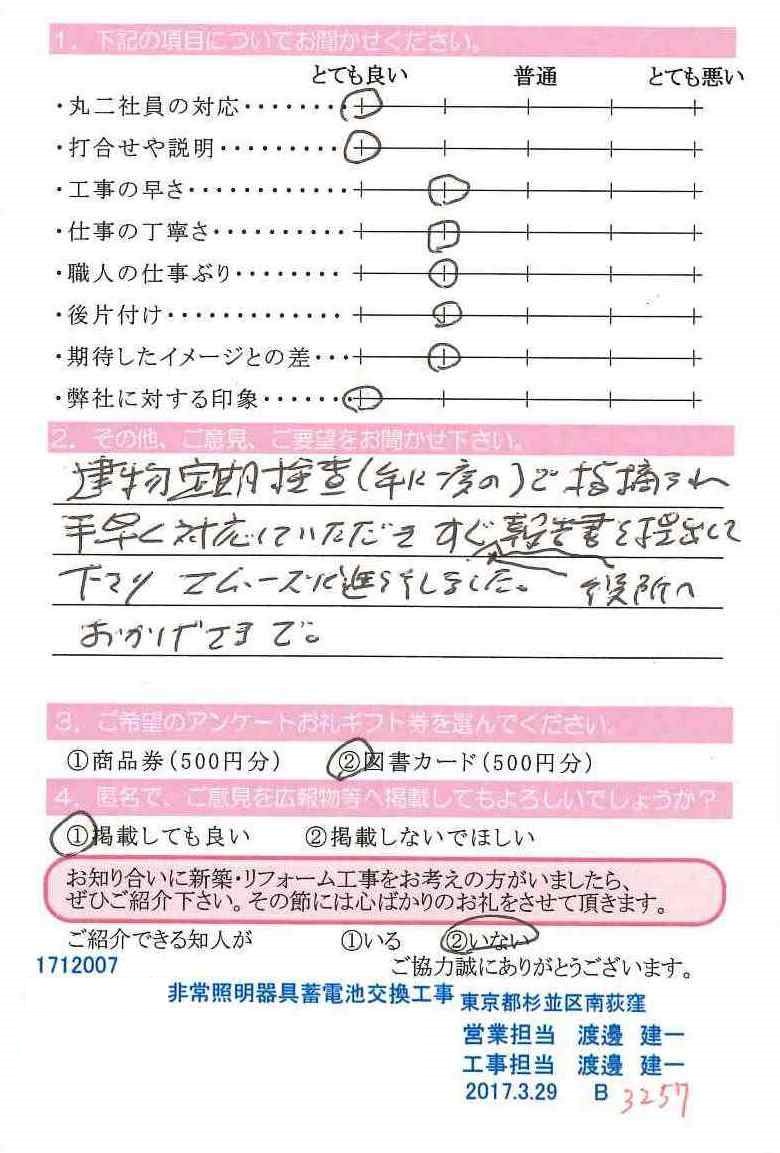 1. 下記の項目についてお聞かせください。
とても良い 普通 とても悪い
・丸二社員の対応・・・・・・・
・打合せや説明・・・・・・・・・
・工事の早さ・・・・・・・・・・・・
・仕事の丁寧さ・・・・・・・・・・
・職人の仕事ぶり・・・・・・・・
・後片付け・・・・・・・・・・・・・
・期待したイメージとの差・・・
・弊社に対する印象・・・・・・
2. その他、ご意見、ご要望をお聞かせ下さい。
建物定期検査(年に一度の)で指摘され
手早く対応していただき すぐ報告書を提出して
下さり スムーズに進みました。 役所へ
おかげさまで。
3. ご希望のアンケートお礼ギフト券を選んでください.
①商品券(500円分) ②図書カード(500円分)
4. 匿名で、ご意見を広報物等へ掲載してもよろしいでしょうか?
①掲載しても良い ②掲載しないでほしい
お知り合いに新築・リフォーム工事をお考えの方がいましたら、
ぜひご紹介下さい。その節には心ばかりのお礼をさせて頂きます。
ご紹介できる知人が ①いる ②いない
1712007 ご協力誠にありがとうございます。
非常照明器具蓄電池交換工事 東京都杉並区南荻窪
営業担当 渡邊 建一
工事担当 渡邊 建一
2017.3.29 B 3257